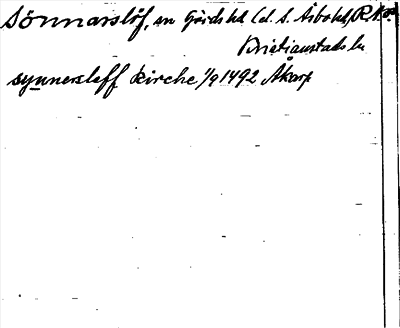 Sönnarslöf, sn Gärds hd (d. S. Åsbohd, R.
Kristianstads län
synnersleff kirche 1/9 1492 Åkarp